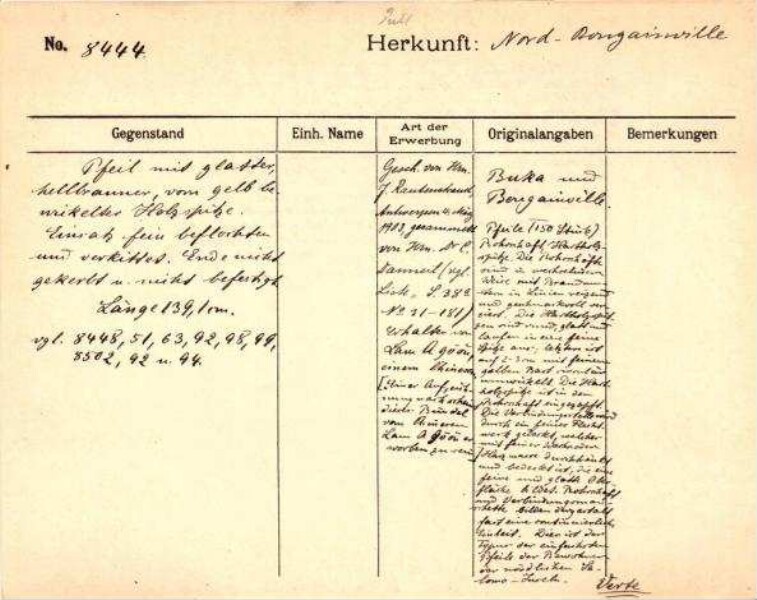 No. 8444
Herkunft: Nord-Bougainville
Gegenstand
Einh. Name
Art der Erwerbung
Originalangaben
Bemerkungen
Pfeil mit glatter,
hellbrauner, vorn gelb be-
wikelter Holzspitze.
Einsatz fein beflochten
und verkittet. Ende nicht
gekerbt u. nicht befestigt.
Länge 139,1 cm.
vgl. 8448, 51, 63, 92, 98, 99,
8502, 92 u. 94.
Gesch. von Hrn.
J.
Antwerpen
1903, gesammelt
von Hrn. Dr C.
(vgl.
S. 38
No 31-181)
Erhalten von
Lam A
einem Chinesen
dieser Bündel
vom Chinesen
Lam A er-
worben zu sein
Buka und
Bougainville.
Pfeile (150 Stück)
Rohrschaft Hartholz-
spitze. Die Rohrschäfte
sind in
Weise mit Brandmu-
stern in Linien
und geschmackvoll ver-
ziert. Die Hartholzspit-
zen sind rund, glatt und
laufen in eine feine
Spitze aus, letztere ist
auf 2-3 cm mit feinem
gelben Bast
umwickelt. Die Hart-
holzspitze ist in den
Rohrschaft eingezapft.
Die Verbindungsstelle wird
durch ein feines Flecht-
werk gedeckt, welches
mit feiner
Harzmasse
und bedeckt ist, die eine
feine und glatte Ober-
fläche bildet. Rohrschaft
und
bilden dergestalt
fast eine continuierliche
Einheit. Dies ist der
Typus der einfachsten
Pfeile der Bewohner
der nördlichen Sa-
lomo-Inseln.
Verte